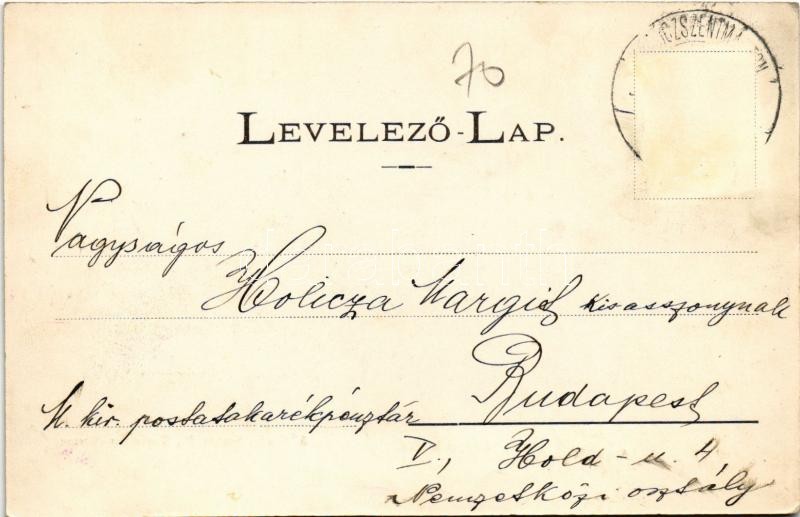 70
LEVELEZŐ-LAP.
Nagyságos
Holicza Margit kisasszonynak
Budapest
M. kir. postatakarékpénztár
V., Hold-u. 4
Nemzetközi osztály